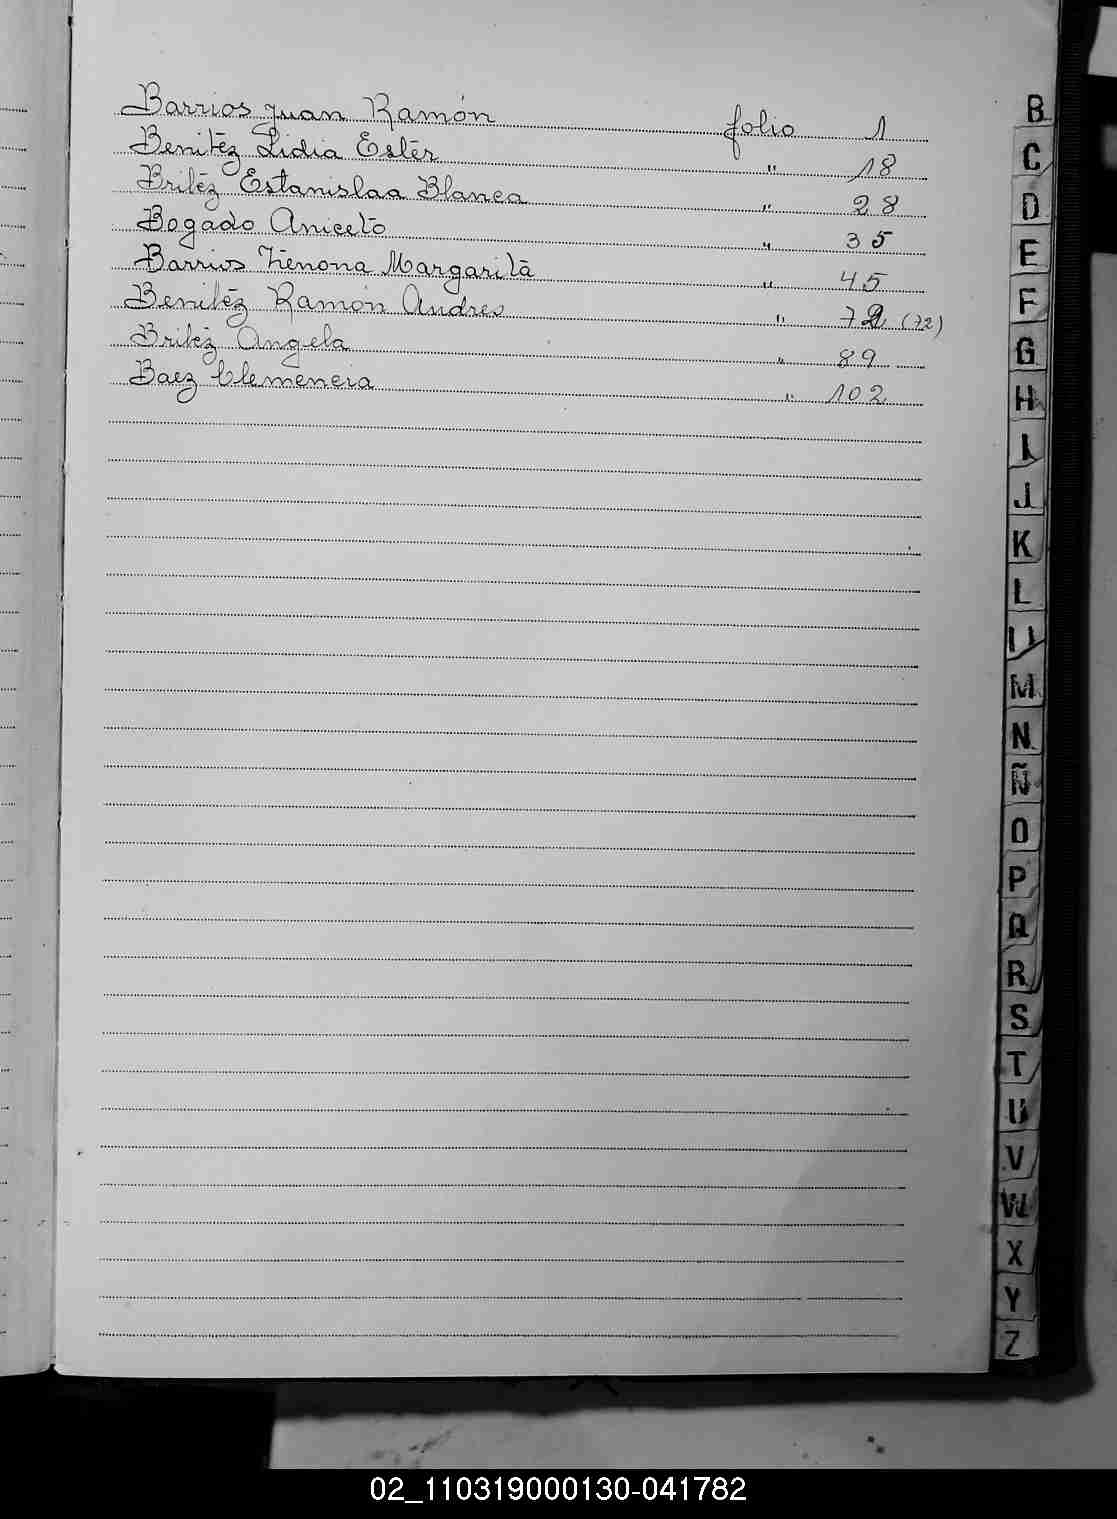 Barrios Juan Ramón folio 1
Benitez Lidia Ester " 18
Britez Estanislaa Blanca " 28
Bogado Aniceto " 35
Barrios Zenona Margarita " 45
Benitez Ramón Andres " 72 (72)
Britez Angela " 89
Baez Clemencia " 102
B
C
D
E
F
G
H
I
J
K
L
M
N
Ñ
O
P
Q
R
S
T
U
V
W
X
Y
Z
02_110319000130-041782